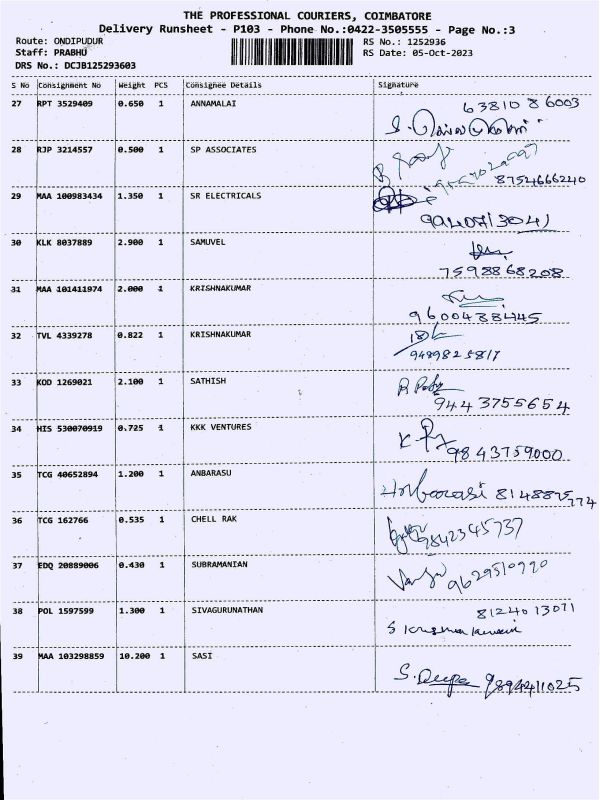 THE PROFESSIONAL COURIERS, COIMBATORE
Delivery Runsheet - P103 - Phone No.:0422-3505555 - Page No.:3
Route: ONDIPUDUR RS No.: 1252936
Staff: PRABHU RS Date: 05-Oct-2023
DRS No.: DCJB125293603
S No Consignment No Weight PCS Consignee Details Signature
27 RPT 3529409 0.650 1 ANNAMALAI 63810 86003
28 RJP 3214557 0.500 1 SP ASSOCIATES
8754666240
29 MAA 100983434 1.350 1 SR ELECTRICALS
9940713041
30 KLK 8037889 2.900 1 SAMUVEL
7598868208
31 MAA 101411974 2.000 1 KRISHNAKUMAR
9600438445
32 TVL 4339278 0.822 1 KRISHNAKUMAR
9489825817
33 KOD 1269021 2.100 1 SATHISH
9443755654
34 HIS 530070919 0.725 1 KKK VENTURES
9843759000
35 TCG 40652894 1.200 1 ANBARASU
36 TCG 162766 0.535 1 CHELL RAK
9842345737
37 EDQ 20889006 0.430 1 SUBRAMANIAN
9629510990
38 POL 1597599 1.300 1 SIVAGURUNATHAN 8124013071
39 MAA 103298859 10.200 1 SASI
S. Deepa 9894411025